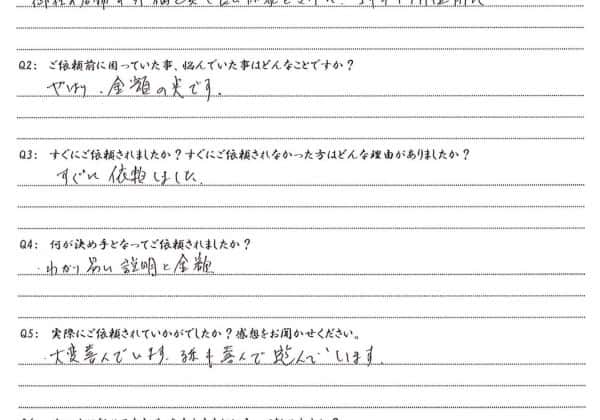 Q2： ご依頼前に困っていた事、悩んでいた事はどんなことですか？
やはり、金額の点です。
Q3： すぐにご依頼されましたか？すぐにご依頼されなかった方はどんな理由がありましたか？
すぐに依頼しました。
Q4： 何が決め手となってご依頼されましたか？
・わかり易い説明と金額
Q5： 実際にご依頼されていかがでしたか？感想をお聞かせください。
・大変喜んでいます。孫も喜んで遊んでいます。